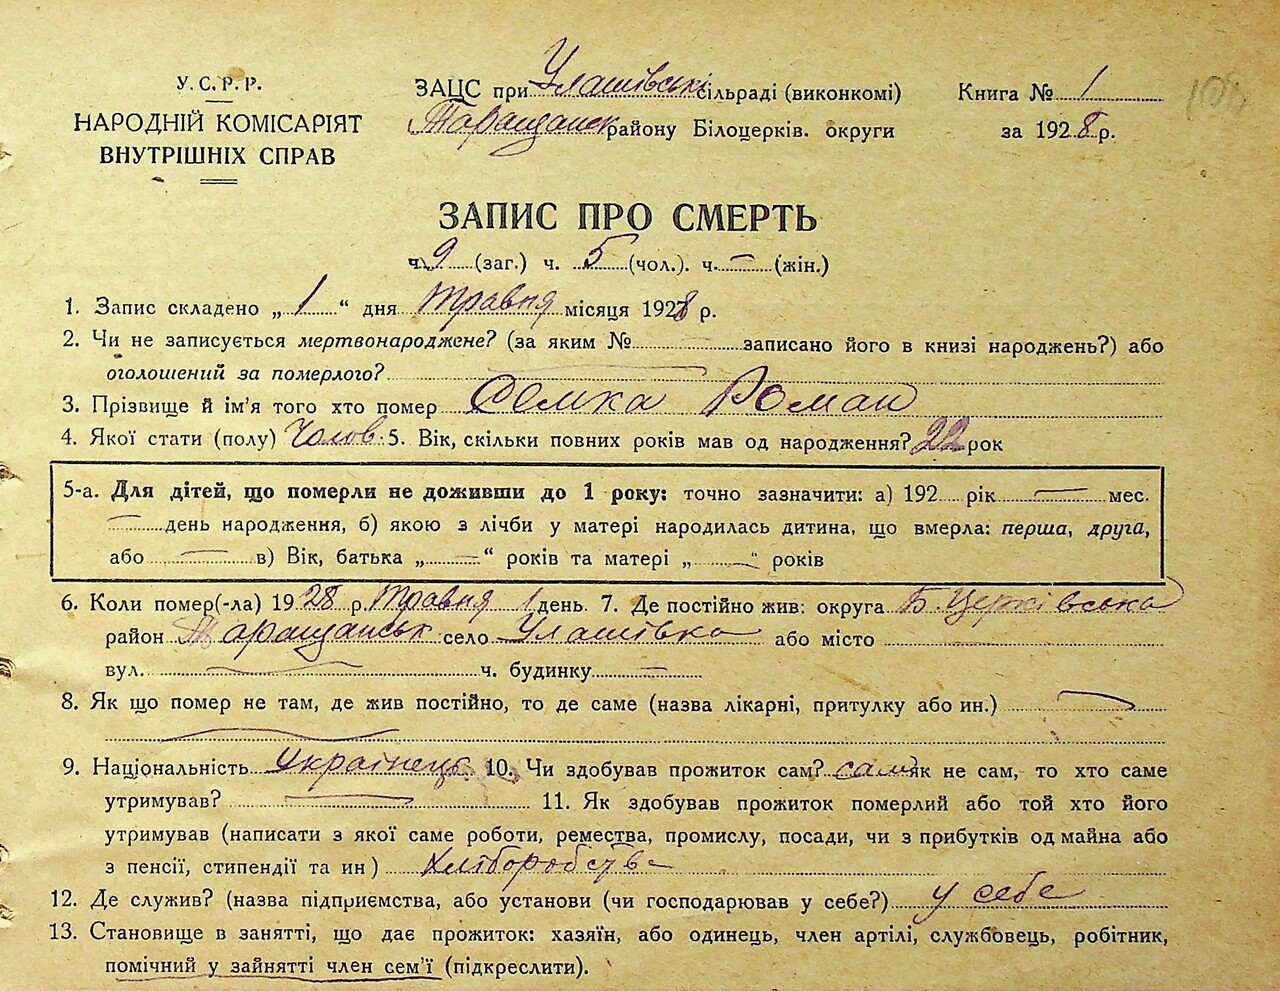 У.С.Р.Р.
НАРОДНІЙ КОМІСАРІЯТ
ВНУТРІШНІХ СПРАВ
ЗАЦС при Улашівські сільраді (виконкомі)
Таращанск району Білоцерків. округи
Книга № 1
за 1928 р.
ЗАПИС ПРО СМЕРТЬ
ч. 9 (заг.) ч. 5 (чол.). ч. — (жін.)
1. Запис складено „ 1 “ дня травня місяця 1928 р.
2. Чи не записується мертвонароджене? (за яким № записано його в книзі народжень?) або
оголошений за померлого?
3. Прізвище й ім'я того хто помер Сємка Роман
4. Якої стати (полу) Чолов. 5. Вік, скільки повних років мав од народження? 22 рок
5-а. Для дітей, що померли не доживши до 1 року: точно зазначити: а) 192 рік — мес.
— день народження, б) якою з лічби у матері народилась дитина, що вмерла: перша, друга,
або — в) Вік, батька „ — “ років та матері „ — “ років
6. Коли помер(-ла) 1928 р. травня 1 день. 7. Де постійно жив: округа Б Церківська
район Таращанськ село Улашівка або місто —
вул. — ч. будинку —
8. Як що помер не там, де жив постійно, то де саме (назва лікарні, притулку або ин.) —
9. Національність Українець. 10. Чи здобував прожиток сам? сам як не сам, то хто саме
утримував? — 11. Як здобував прожиток померлий або той хто його
утримував (написати з якої саме роботи, ремества, промислу, посади, чи з прибутків од майна або
з пенсії, стипендії та ин) Хліборобство
12. Де служив? (назва підприємства, або установи (чи господарював у себе?) у себе
13. Становище в занятті, що дає прожиток: хазяїн, або одинець, член артілі, службовець, робітник,
помічний у зайнятті член сем'ї (підкреслити).